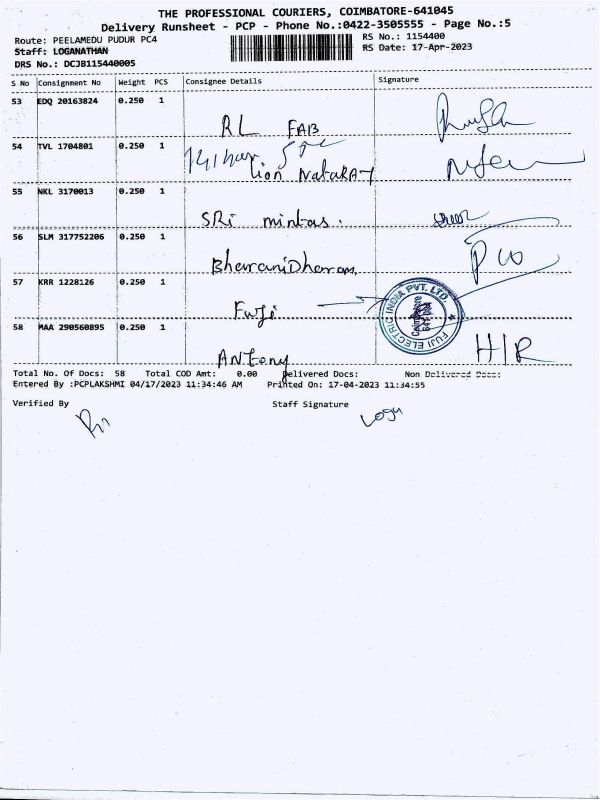 THE PROFESSIONAL COURIERS, COIMBATORE-641045
Delivery Runsheet - PCP - Phone No.:0422-3505555 - Page No.:5
Route: PEELAMEDU PUDUR PC4
RS No.: 1154400
Staff: LOGANATHAN
RS Date: 17-Apr-2023
DRS No.: DCJB115440005
S No Consignment No Weight PCS Consignee Details Signature
53 EDQ 20163824 0.250 1
RL FAB
54 TVL 1704801 0.250 1
Lion NataRAJ
55 NKL 3170013 0.250 1
SRi mintas.
56 SLM 317752206 0.250 1
BhavaniDharan.
57 KRR 1228126 0.250 1
Fuji
FUJI ELECTRIC INDIA PVT. LTD.
58 MAA 290560895 0.250 1
ANtony H/R
Total No. Of Docs: 58 Total COD Amt: 0.00 Delivered Docs: Non Delivered Docs:
Entered By :PCPLAKSHMI 04/17/2023 11:34:46 AM Printed On: 17-04-2023 11:34:55
Verified By Staff Signature
Logu